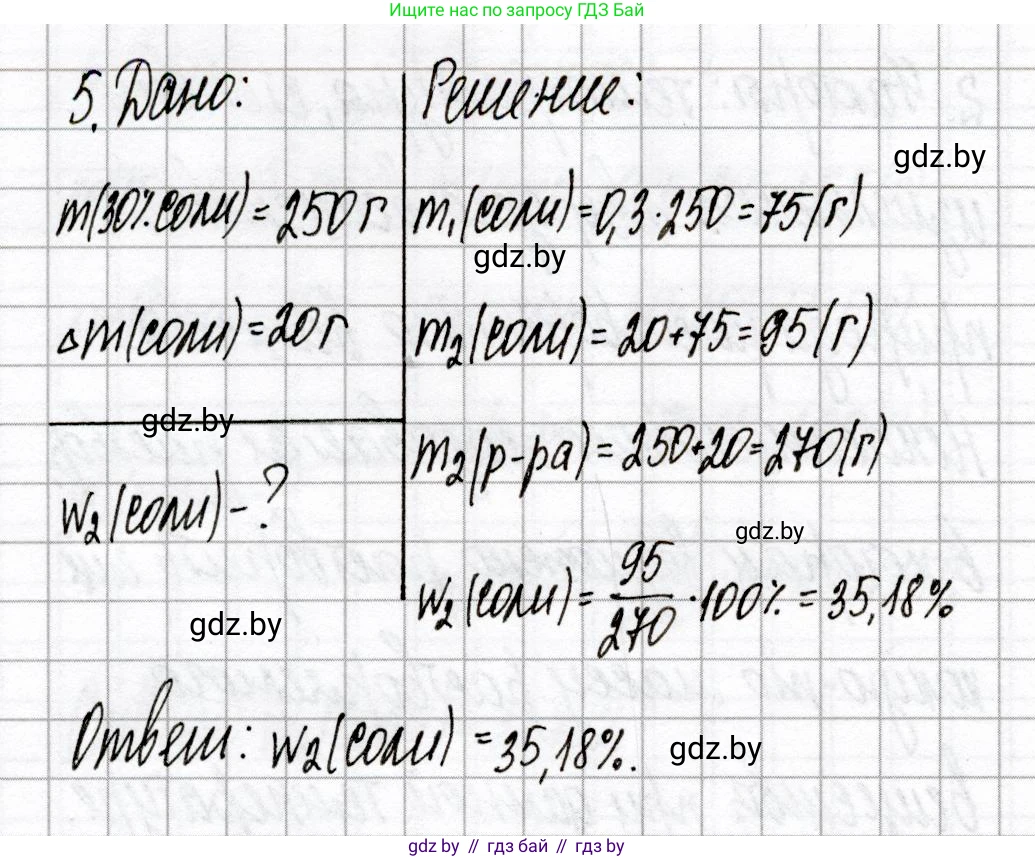 Ищите нас по запросу ГДЗ Бай
5. Дано:
Решение:
gdz.by
m(30% соли) = 250 г
m₁(соли) = 0,3·250 = 75(г)
gdz.by
Δm(соли) = 20 г
m₂(соли) = 20+75 = 95(г)
gdz.by
m₂(р-ра) = 250+20 = 270(г)
w₂(соли) - ?
gdz.by
w₂(соли) = 95/270 · 100% = 35,18%
gdz.by
Ответ: w₂(соли) = 35,18%.
gdz.by
gdz.by // гдз бай // gdz.by